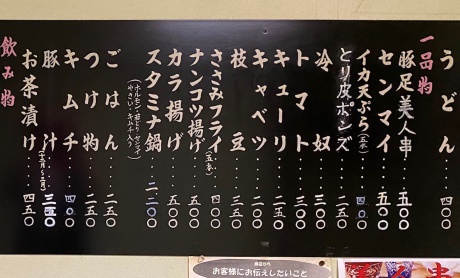 一品物
うどん‥‥四〇〇
豚足美人串‥五〇〇
センマイ‥‥五〇〇
イカ天ぷら(三本)‥四〇〇
とり皮ポンズ‥二五〇
冷奴‥‥三〇〇
トマト‥‥三〇〇
キューリ‥‥二〇〇
キャベツ‥‥二〇〇
枝豆‥‥三〇〇
ささみフライ(五本)‥四〇〇
ナンコツ揚げ‥五〇〇
カラ揚げ‥‥五〇〇
スタミナ鍋‥二二〇〇
(ホルモン・若どり・センマイ
やさい・キムチ入り)
ごはん‥‥二五〇
つけ物‥‥二五〇
キムチ‥‥四〇〇
豚汁‥‥三五〇
お茶漬け(十二月~二月)‥四五〇
飲み物
当店から
お客様にお伝えしたいこと